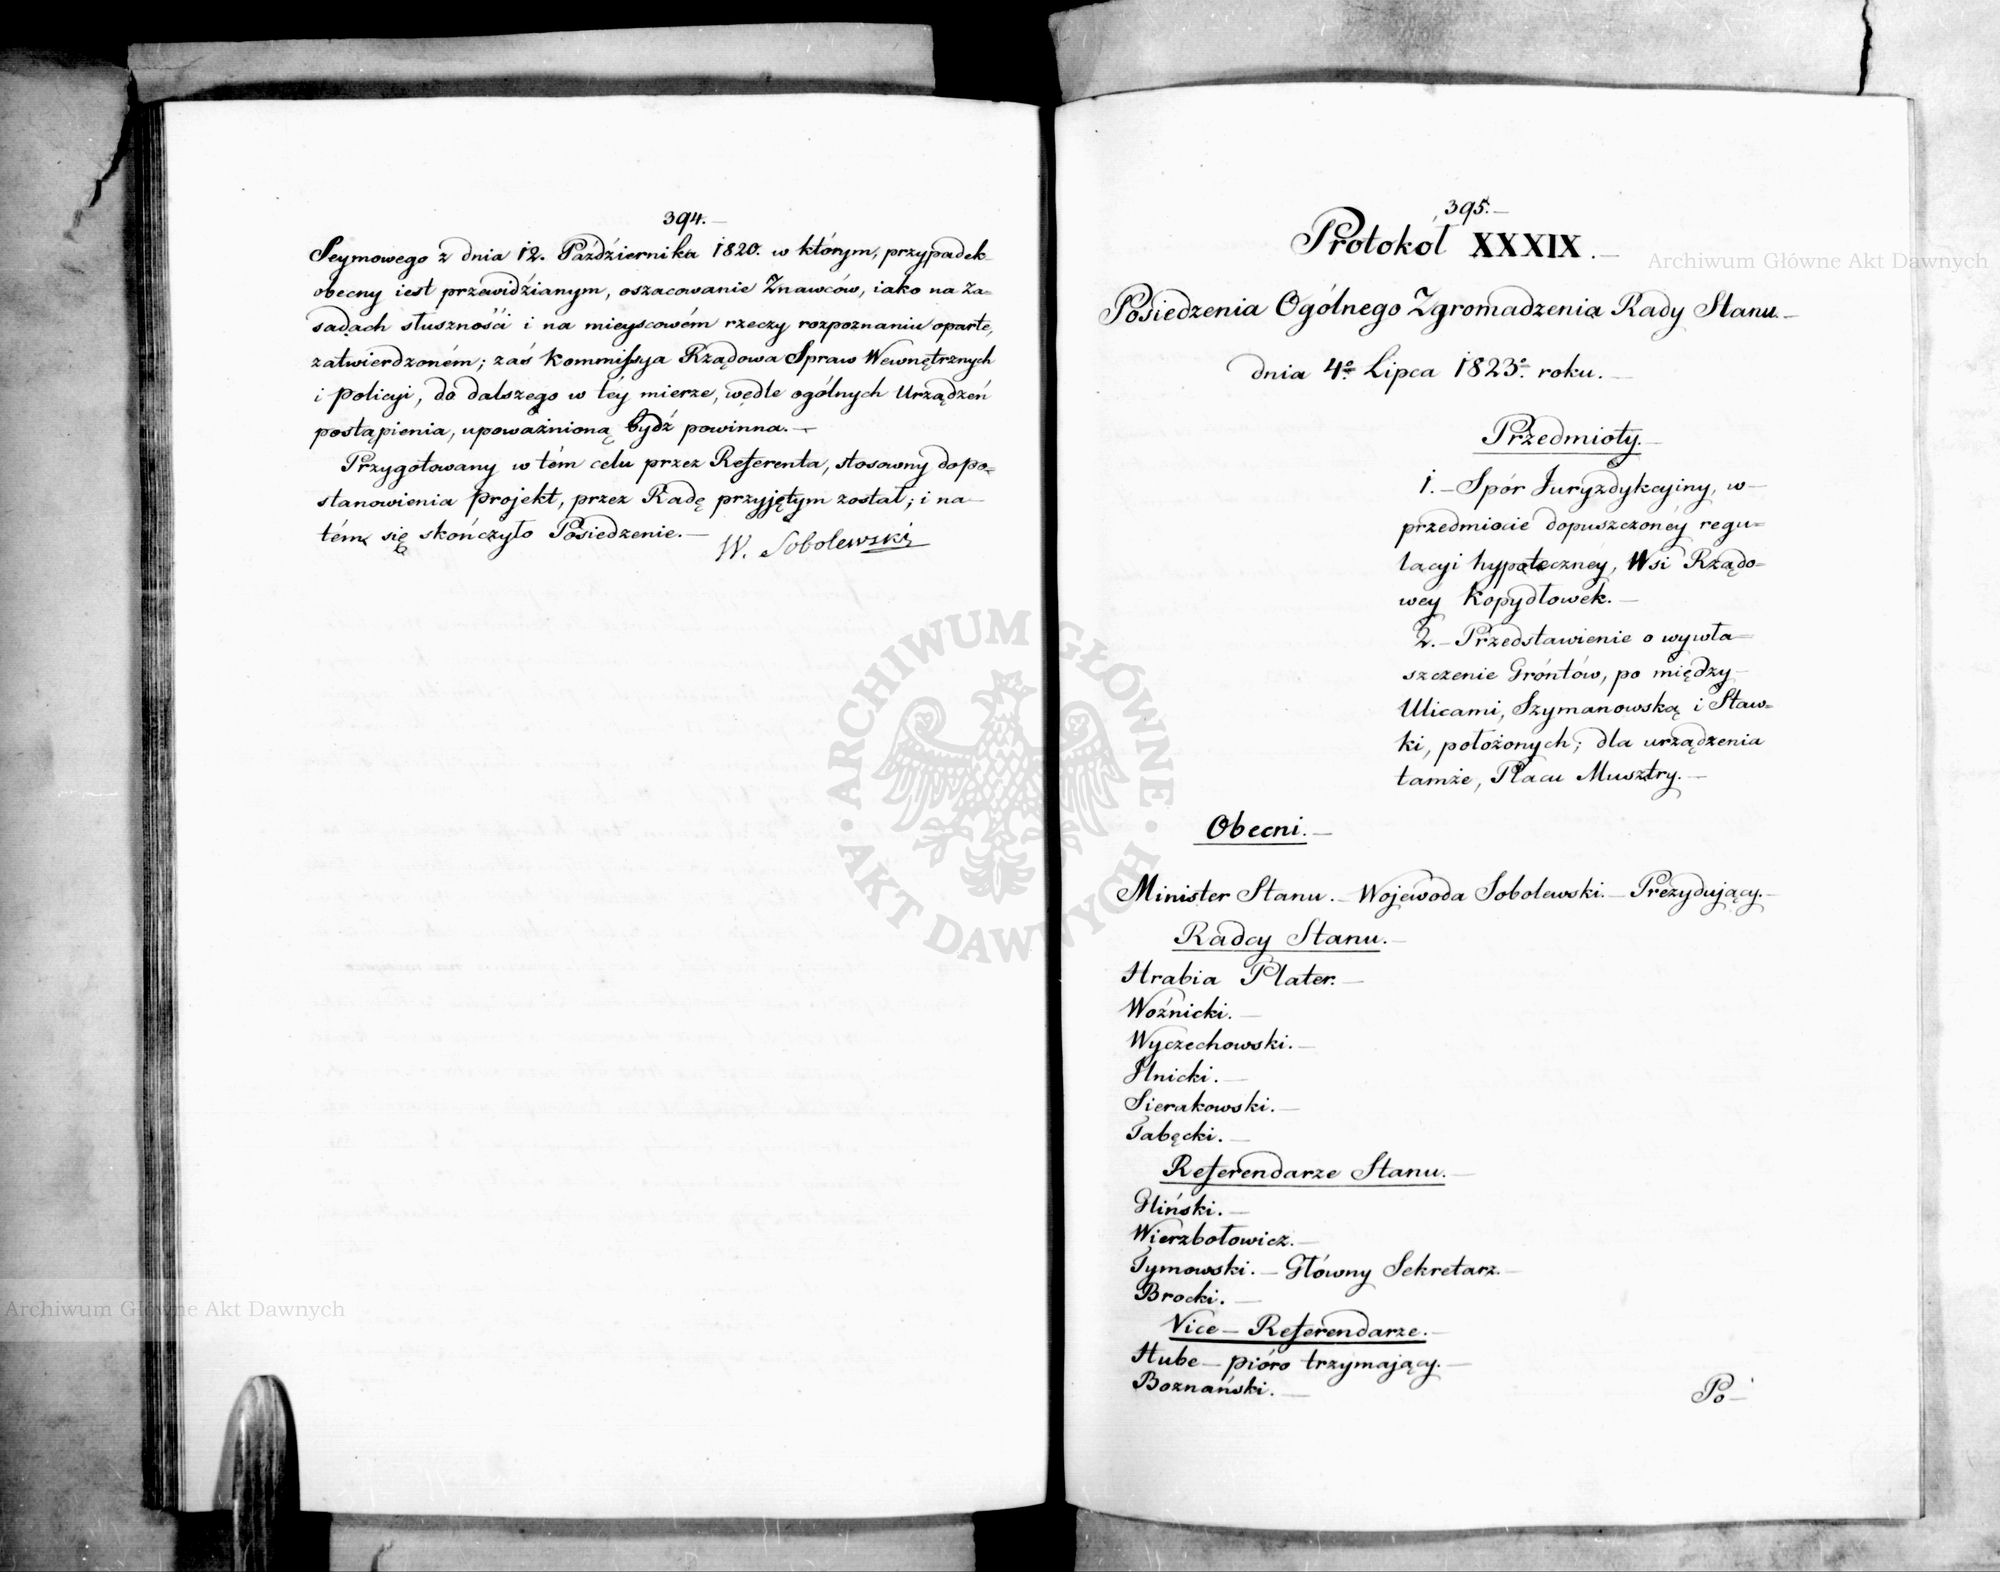 394.
Seymowego z dnia 12. Października 1820. w którym, przypadek
obecny iest przewidzianym, oszacowanie Znawców, iako na za=
sadach słuszności i na mieyscowém rzeczy rozpoznaniu oparte,
zatwierdzoném; zaś Kommissya Rządowa Spraw Wewnętrznych
i Policyi, do dalszego w téy mierze, wedle ogólnych Urządzeń
postąpienia, upoważnioną bydź powinna. —
Przygotowany w tém celu przez Referenta, stosowny do po=
stanowienia projekt, przez Radę przyjętym został; i na —
tém się skończyło Posiedzenie. —
W. Sobolewski
395. —
Protokół XXXIX. —
Posiedzenia Ogólnego Zgromadzenia Rady Stanu —
dnia 4º Lipca 1823º roku. —
Przedmioty. —
1. — Spór Juryzdykcyiny, w —
przedmiocie dopuszczonéy regu=
lacyi hypoteczney, Wsi Rządo=
wey Kopydłowek. —
2. — Przedstawienie o wywła=
szczenie Gróntów, po między —
Ulicami, Szymanowską i Staw=
ki, położonych; dla urządzenia
tamże, Placu Musztry. —
Obecni. —
Minister Stanu. — Wojewoda Sobolewski. — Prezydujący. —
Radcy Stanu. —
Hrabia Plater. —
Woźnicki. —
Wyczechowski. —
Ilnicki. —
Sierakowski. —
Tabęcki. —
Referendarze Stanu. —
Gliński. —
Wierzbołowicz. —
Tymowski. — Główny Sekretarz. —
Brocki. —
Vice — Referendarze. —
Hube — pióro trzymający. —
Boznański. —
Po —
Archiwum Główne Akt Dawnych
ARCHIWUM GŁÓWNE
· AKT DAWNYCH ·
Archiwum Główne Akt Dawnych